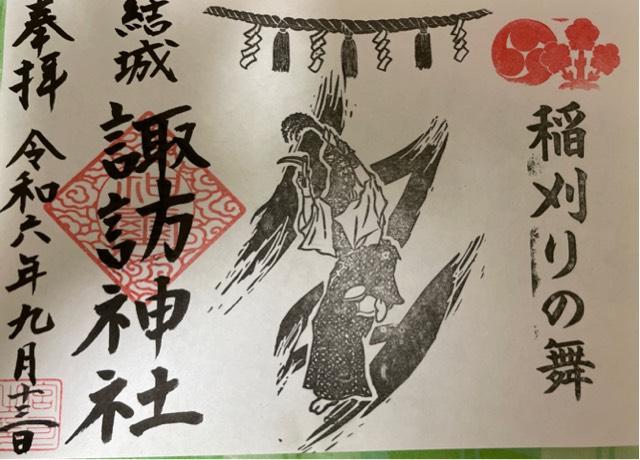 稲刈りの舞
結城
諏訪神社
奉拝
令和六年九月十三日